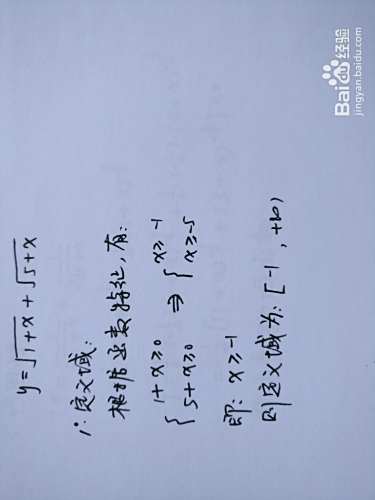 y=√1+x + √5+x
1°定义域:
根据函数特征,有:
{ 1+x≥0 ⇒ { x≥-1
{ 5+x≥0 { x≥-5
即: x≥-1
则定义域为: [-1, +∞)
Baidu经验
jingyan.baidu.com